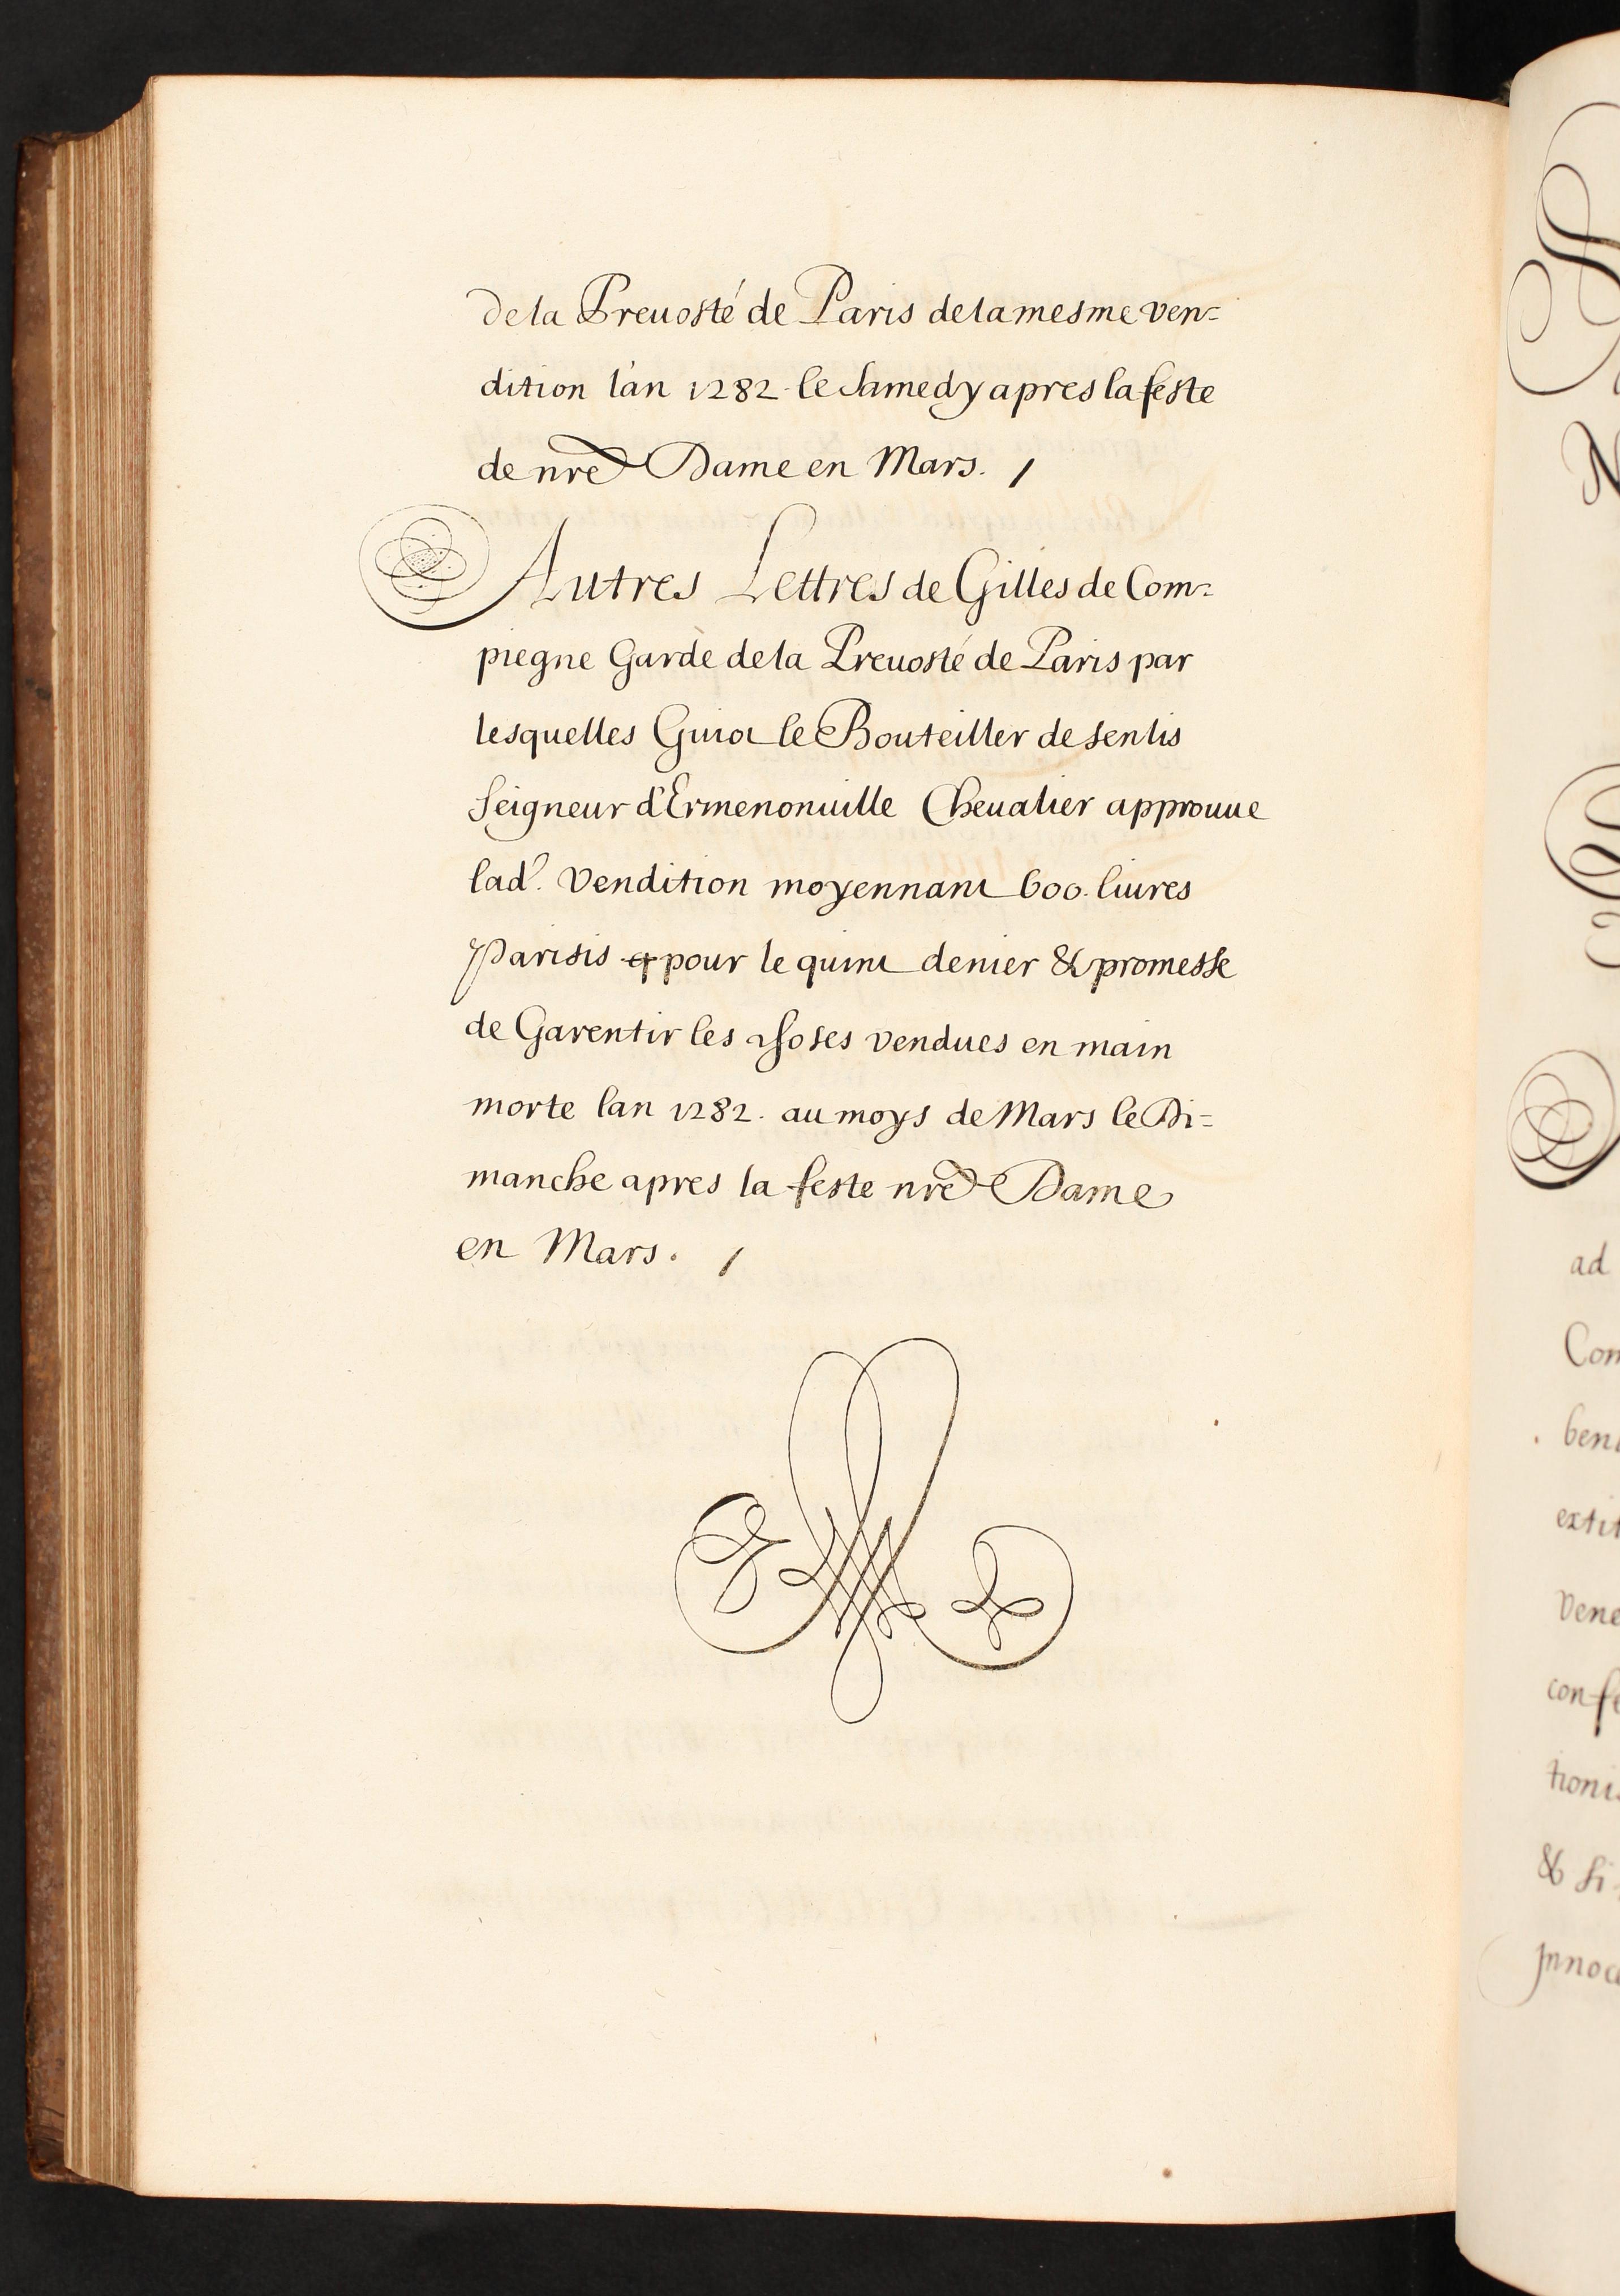 de la Preuosté de Paris de la mesme ven=
dition l'an 1282. le Samedy apres la feste
de nre Dame en Mars. /
Autres Lettres de Gilles de Com=
piegne Garde de la Preuosté de Paris par
lesquelles Guiot le Bouteiller de Senlis
Seigneur d'Ermenonuille Cheualier approuue
lad.e Vendition moyennant 600. liures
Parisis et pour le quint denier & promesse
de Garentir les choses vendues en main
morte lan 1282. au moys de Mars le Di=
manche apres la feste nre Dame
en Mars. /
ad
Com
extit
Vene
& si